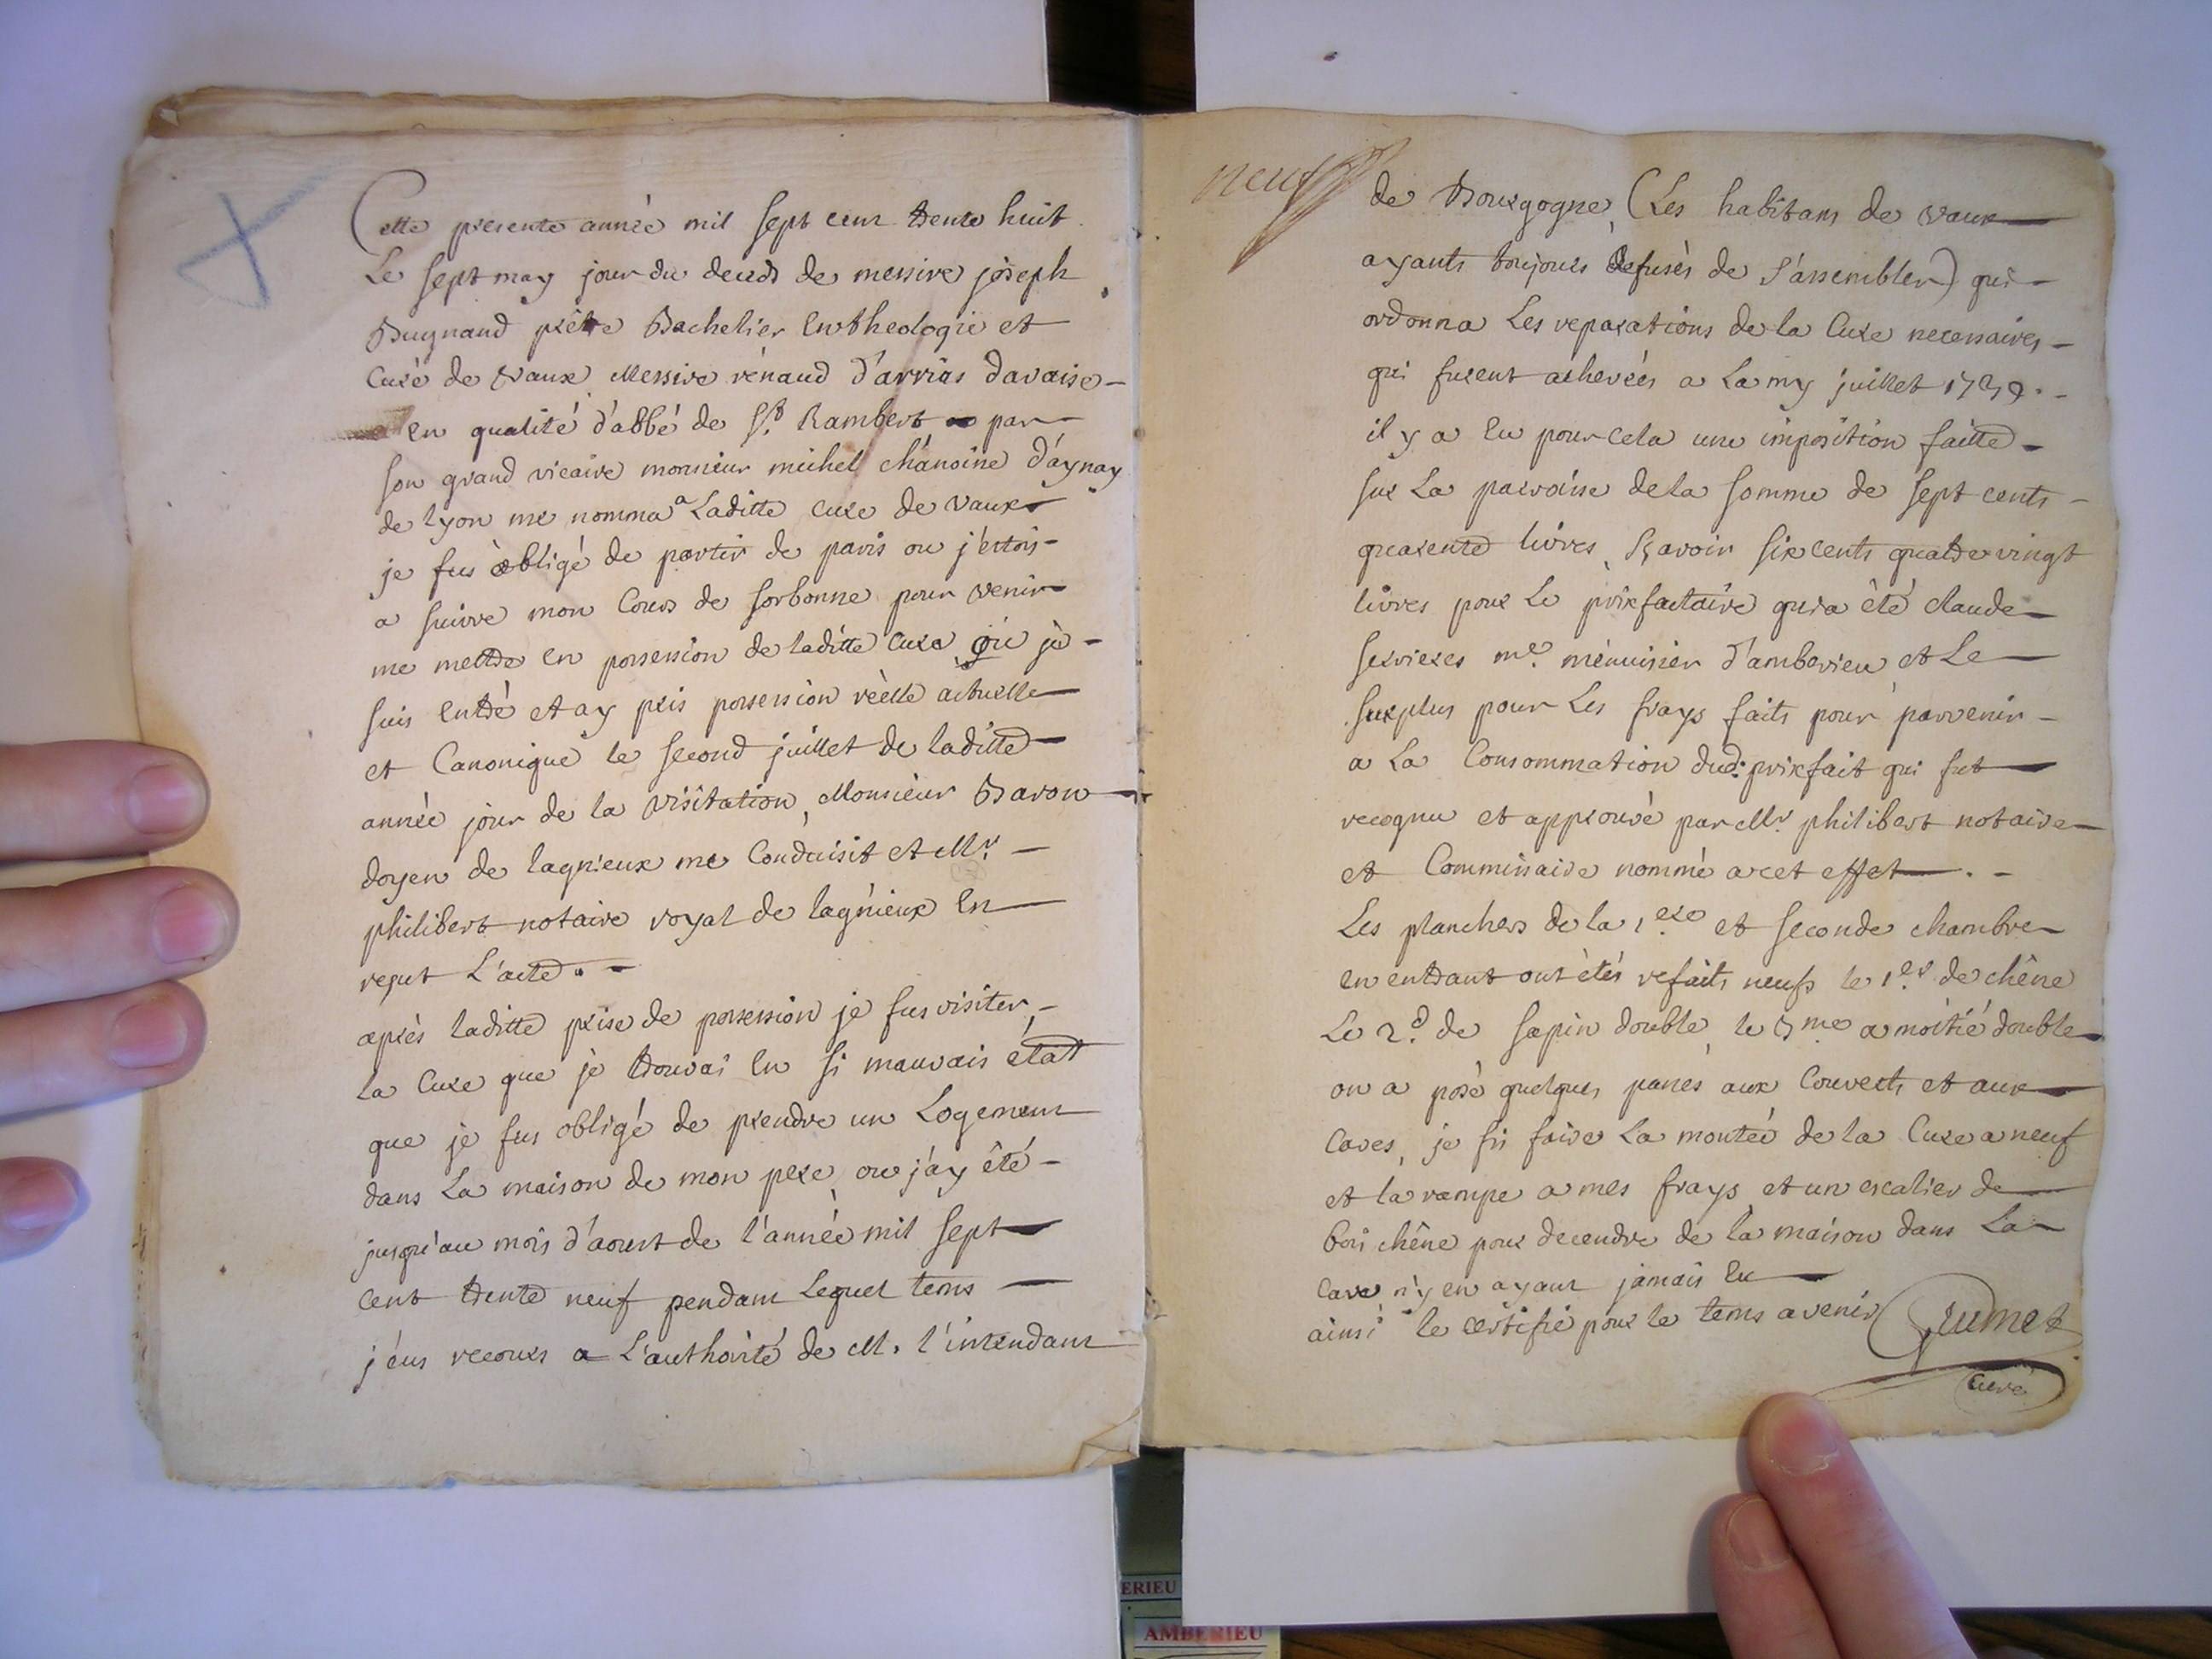 Cette presente année mil sept cent trente huit
Le sept may jour du deceds de messire joseph
Buynand prêtre Bachelier en theologie et
Curé de Vaux Messire rénaud d'arrias davaise
en qualité d'abbé de St. Rambert par
son grand vicaire monsieur michel chánoine d'áynay
de lyon me nomma a Laditte cure de Vaux
je fus obligé de partir de paris ou j'êtois
a suivre mon Cours de sorbonne pour venir
me mettre en possession de laditte cure, où je
suis Entré et ay pris possession réelle actuelle
et Canonique le second juillet de laditte
année jour de la visitation, Monsieur Baron
doyen de lagnieux me Conduisit et Mr.
philibert notaire royal de lagnieux En
reçut L'acte.
après laditte prise de possession je fus visiter,
la Cure que je trouvai En si mauvais état
que je fus obligé de prendre un Logement
dans La maison de mon pere, ou j'ay êté
jusqu'au mois d'aoust de l'année mil sept
cent trente neuf pendant Lequel tems
j'eus recours a L'authorité de M. l'intendant
neuf
de Bourgogne, (Les habitans de vaux
ayants toujours refusés de s'assembler) qui
ordonna Les reparations de la Cure necessaires
qui furent achevées a La my juillet 1739.
il y a Eu pour cela une imposition faitte
sur La parroisse de la somme de sept cents
quarente livres, sçavoir six cents quatre vingt
livres pour Le prixfactaire qui a êté claude
serrieres me. ménuisier d'amberieu, et Le
surplus pour Les frays faits pour parvenir
a La Consommation dud: prixfait qui fut
recognu et approuvé par Mr. philibert notaire
et Commissaire nommé a cet effet.
Les planchers de la 1ere et seconde chambre
en entrant ont êtés refaits neufs le 1er de chêne
Le 2d. de sapin double, le 3me a moitié double
on a posé quelques panes aux Couverts et aux
Caves, je fis faire La montée de la Cure a neuf
et la rampe a mes frays et un escalier de
bois chêne pour decendre de la maison dans La
Cave n'y en ayant jamais Eu
ainsi le certifie pour le tems avenir Grumet
curé
ERIEU
AMBERIEU